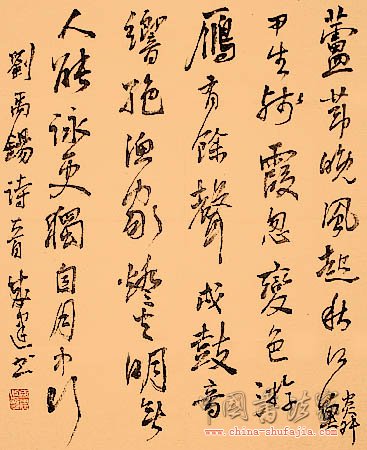 蘆葦晚風起秋江鱗
甲生殘霞忽變色游
鴈有餘聲戍鼓音
響絕漁家燈火明無
人能詠史獨自月中行
劉禹錫詩一首 書
www.china-shufajia.com